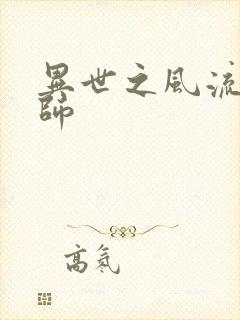 異世之風流
師
高氣